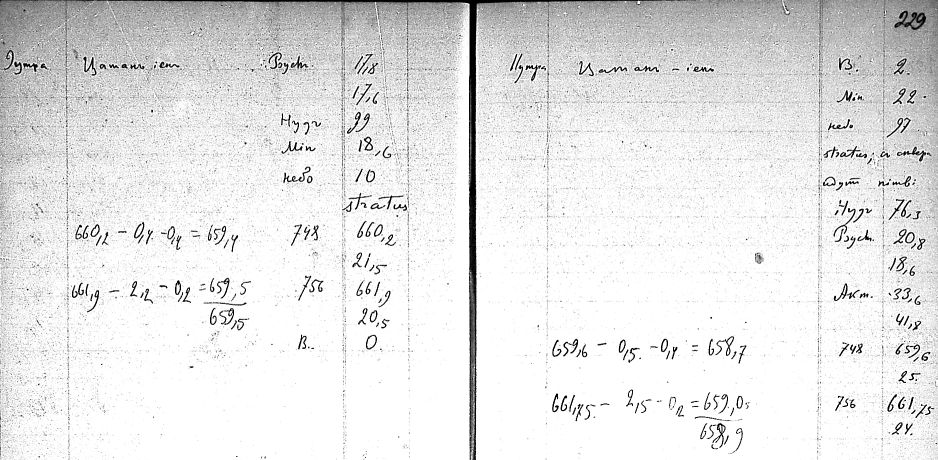 Цитань-іен Psych. 17,8
17,6
Нудг 99
Min 18,6
небо 10
stratus
660,2 - 0,4 - 0,4 = 659,4 748 660,2
21,5
661,9 - 2,2 - 0,2 = 659,5 756 661,9
659,5 20,5
B. 0
229
B. 2.
Min 22.
небо 97
stratus, съ севера
идутъ nimbi
76,3
Psych. 20,8
18,6
Акт. 33,6
41,8
659,6 - 0,5 - 0,4 = 658,7 748 659,6
25.
661,75 - 2,5 - 0,2 = 659,05 756 661,75
658,9 24.